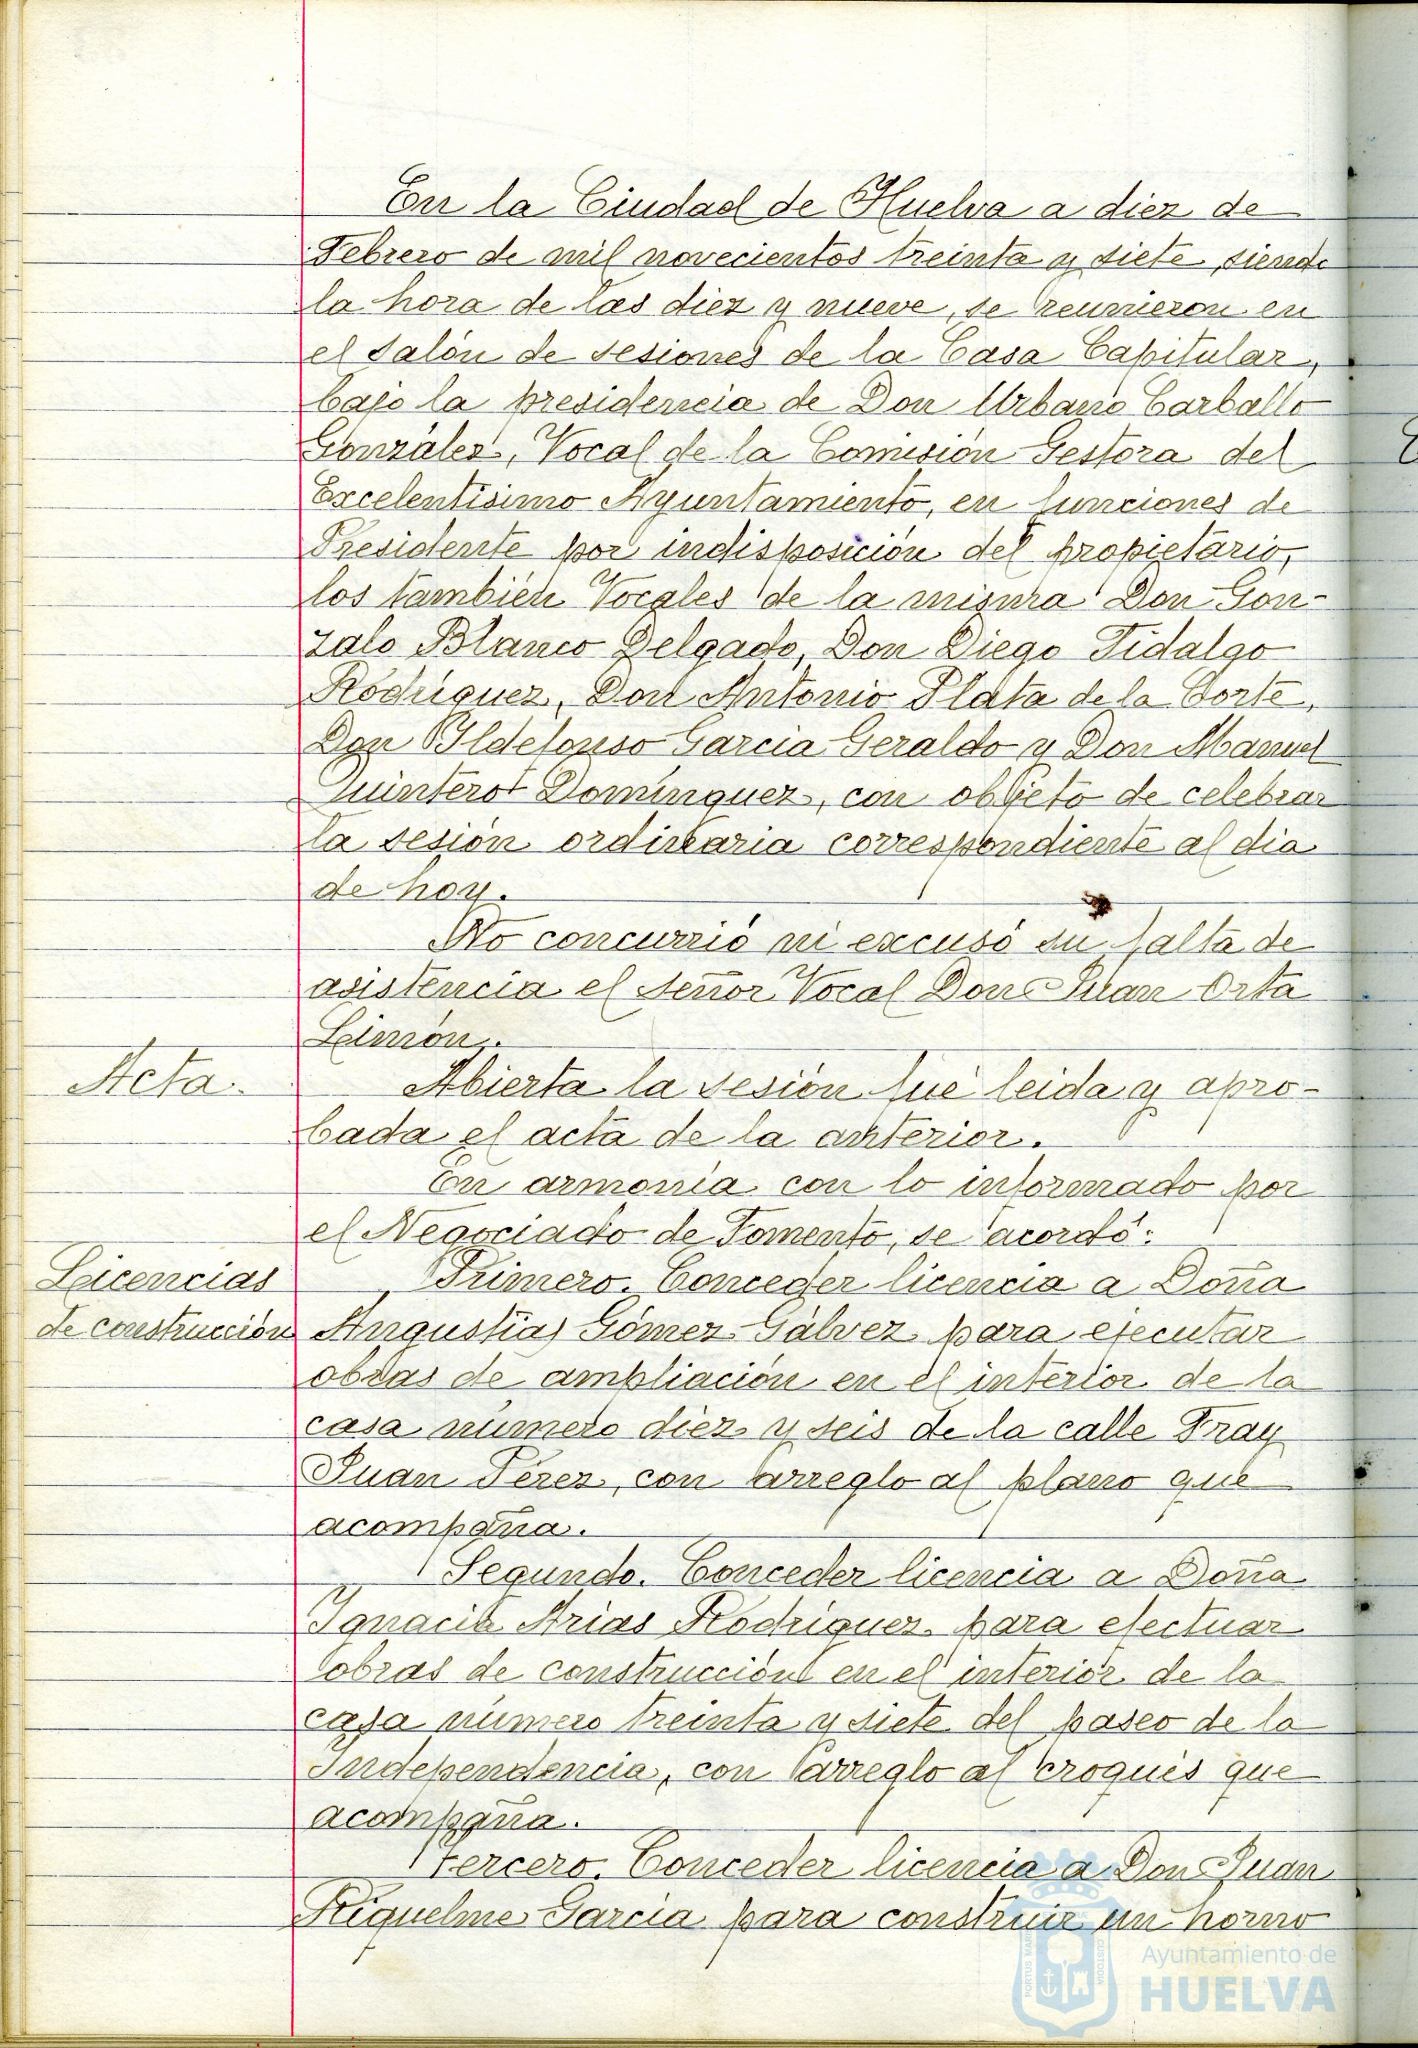 En la Ciudad de Huelva a diez de
Febrero de mil novecientos treinta y siete, siendo
la hora de las diez y nueve, se reunieron en
el salón de sesiones de la Casa Capitular,
bajo la presidencia de Don Urbano Carballo
González, Vocal de la Comisión Gestora del
Excelentísimo Ayuntamiento, en funciones de
Presidente por indisposición del propietario,
los también Vocales de la misma Don Gon-
zalo Blanco Delgado, Don Diego Fidalgo
Rodríguez, Don Antonio Plata de la Corte,
Don Ildefonso García Geraldo y Don Manuel
Quintero Domínguez, con objeto de celebrar
la sesión ordinaria correspondiente al dia
de hoy.
No concurrió ni excusó su falta de
asistencia el señor Vocal Don Juan Orta
Limón.
Acta.
Abierta la sesión fué leida y apro-
bada el acta de la anterior.
En armonía con lo informado por
el Negociado de Fomento, se acordó:
Licencias
de construcción
Primero. Conceder licencia a Doña
Angustias Gómez Gálvez para ejecutar
obras de ampliación en el interior de la
casa número diez y seis de la calle Fray
Juan Pérez, con arreglo al plano que
acompaña.
Segundo. Conceder licencia a Doña
Ignacia Arias Rodríguez para efectuar
obras de construcción en el interior de la
casa número treinta y siete del paseo de la
Independencia, con arreglo al croquis que
acompaña.
Tercero. Conceder licencia a Don Juan
Riquelme García para construir un horno
Ayuntamiento de
HUELVA